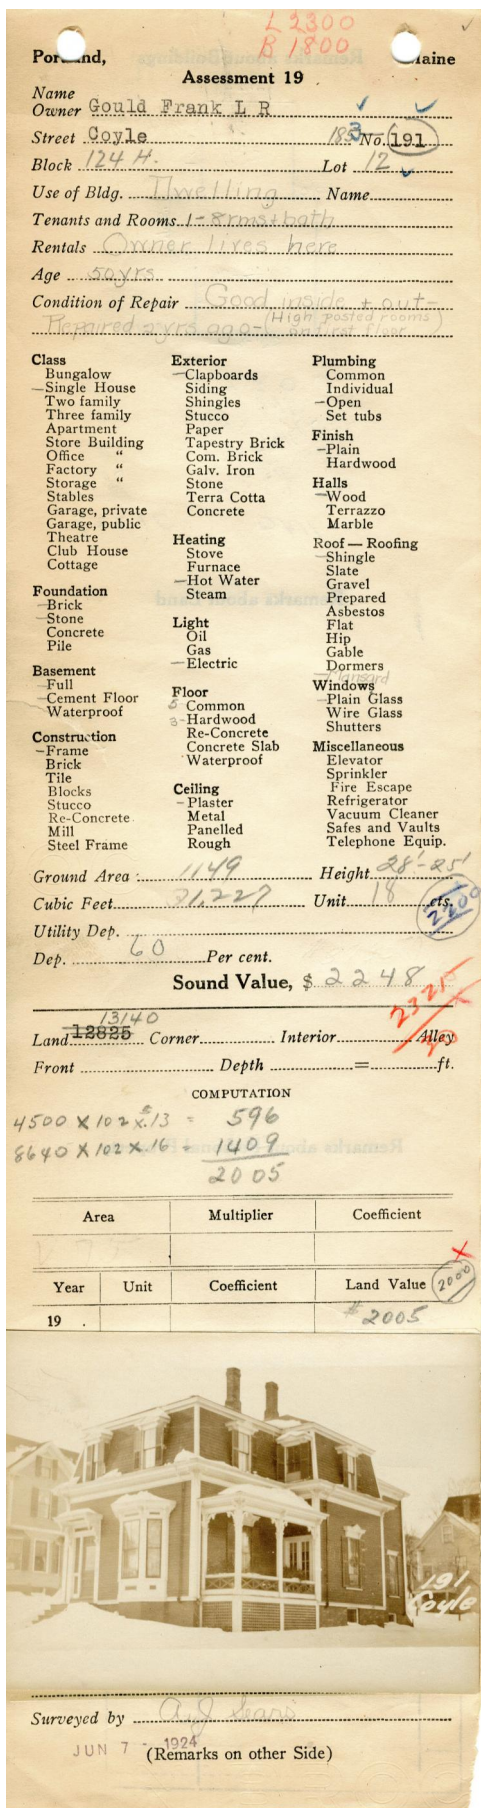 L 2300
B 1800
Portland, Maine
Assessment 19
Name
Owner Gould Frank L R
Street Coyle 185 3 No. 191
Block 124 H. Lot 12
Use of Bldg. Dwelling Name
Tenants and Rooms 1 - 8 rms + bath
Rentals Owner lives here
Age 50 yrs
Condition of Repair Good inside + out-
Repaired 2 yrs ago - (High posted rooms)
and 1st floor
Class
Bungalow
Single House
Two family
Three family
Apartment
Store Building
Office "
Factory "
Storage "
Stables
Garage, private
Garage, public
Theatre
Club House
Cottage
Foundation
Brick
Stone
Concrete
Pile
Basement
Full
Cement Floor
Waterproof
Construction
Frame
Brick
Tile
Blocks
Stucco
Re-Concrete
Mill
Steel Frame
Exterior
Clapboards
Siding
Shingles
Stucco
Paper
Tapestry Brick
Com. Brick
Galv. Iron
Stone
Terra Cotta
Concrete
Heating
Stove
Furnace
Hot Water
Steam
Light
Oil
Gas
Electric
Floor
5 Common
3 - Hardwood
Re-Concrete
Concrete Slab
Waterproof
Ceiling
Plaster
Metal
Panelled
Rough
Plumbing
Common
Individual
Open
Set tubs
Finish
Plain
Hardwood
Halls
Wood
Terrazzo
Marble
Roof — Roofing
Shingle
Slate
Gravel
Prepared
Asbestos
Flat
Hip
Gable
Dormers
Mansard
Windows
Plain Glass
Wire Glass
Shutters
Miscellaneous
Elevator
Sprinkler
Fire Escape
Refrigerator
Vacuum Cleaner
Safes and Vaults
Telephone Equip.
Ground Area 1149 Height 28'-25'
Cubic Feet 31,227 Unit 18 cts.
2200
Utility Dep.
Dep. 60 Per cent.
Sound Value, $ 2248
2325
50
13140
Land 12825 Corner Interior Alley
Front Depth = ft.
COMPUTATION
4500 X 102 X $.13 = 596
8640 X 102 X 16 = 1409
2005
Area Multiplier Coefficient
Year Unit Coefficient Land Value 2000
19 . # 2005
191
Coyle
Surveyed by A J Sears
JUN 7 - 1924
(Remarks on other Side)